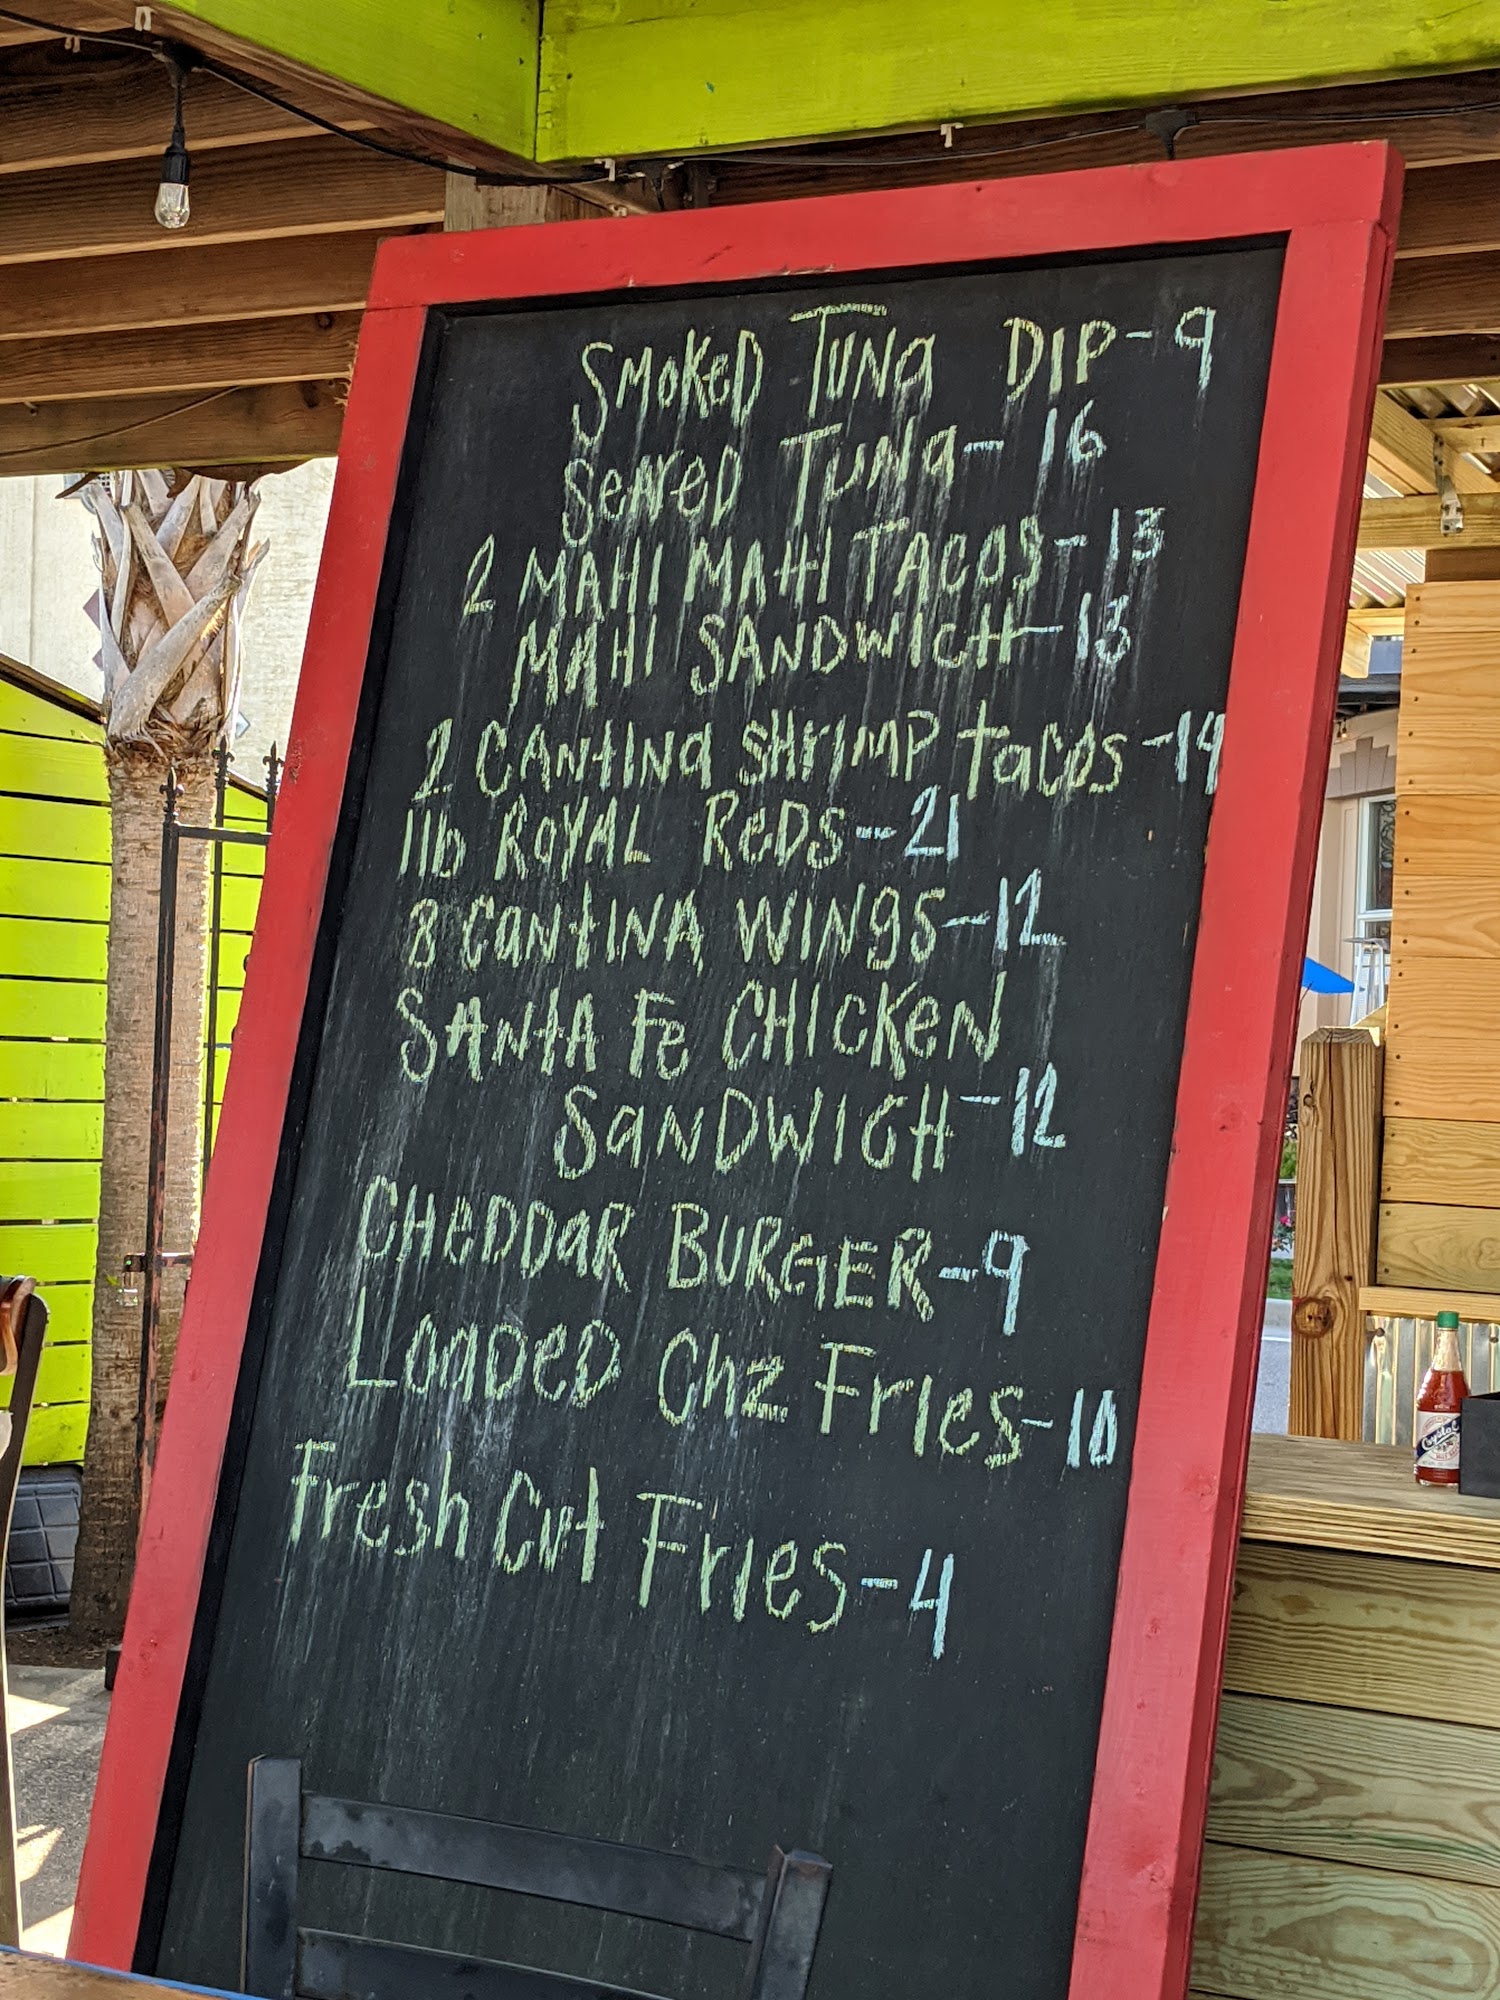 SMOKeD TUNa DIP-9
SeAReD TUNa-16
2 MAHI MAHI TACOS-13
MAHI SANDWICH-13
2 CANtINa SHRIMP tacos-14
1lb ROYAL ReDS-21
8 CantINA WINgS-12
SANtA Fe CHICKeN
SaNDWICH-12
CHeDDaR BURGER-9
LoaDeD Chz Fries-10
Fresh Cut Fries-4
Crystal